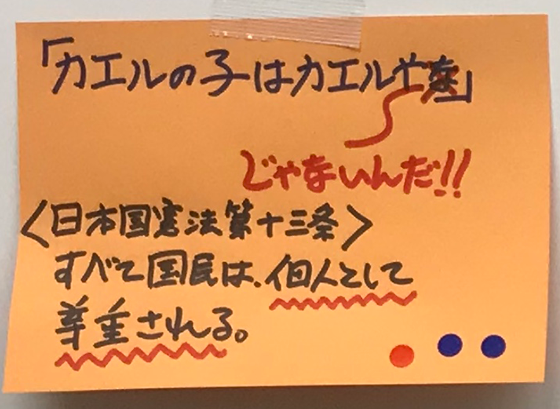 「カエルの子はカエルやな」
じゃないんだ!!
〈日本国憲法第十三条〉
すべて国民は、個人として
尊重される。